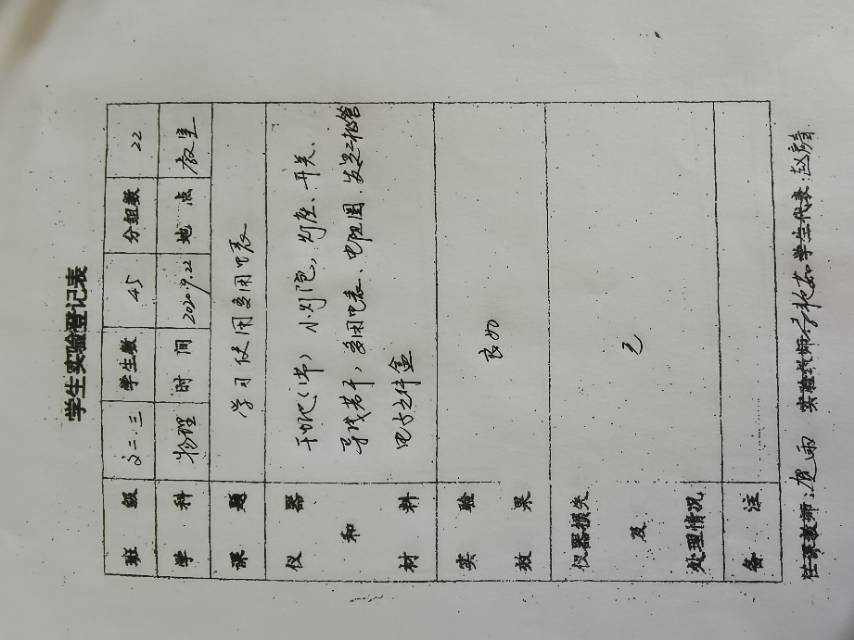 学生实验登记表
班级 高二.三 学生数 45 分组数 22
学科 物理 时间 2020.9.22 地点 教室
课题 学习使用多用电表
仪器和材料 干电池(1节) 小灯泡, 灯座、开关、
导线若干, 多用电表、电阻圈、发光二极管
电学元件盒
实验效果 良好
仪器损失及处理情况 无
备注
任课教师: 贺雨 实验教师 学生代表: